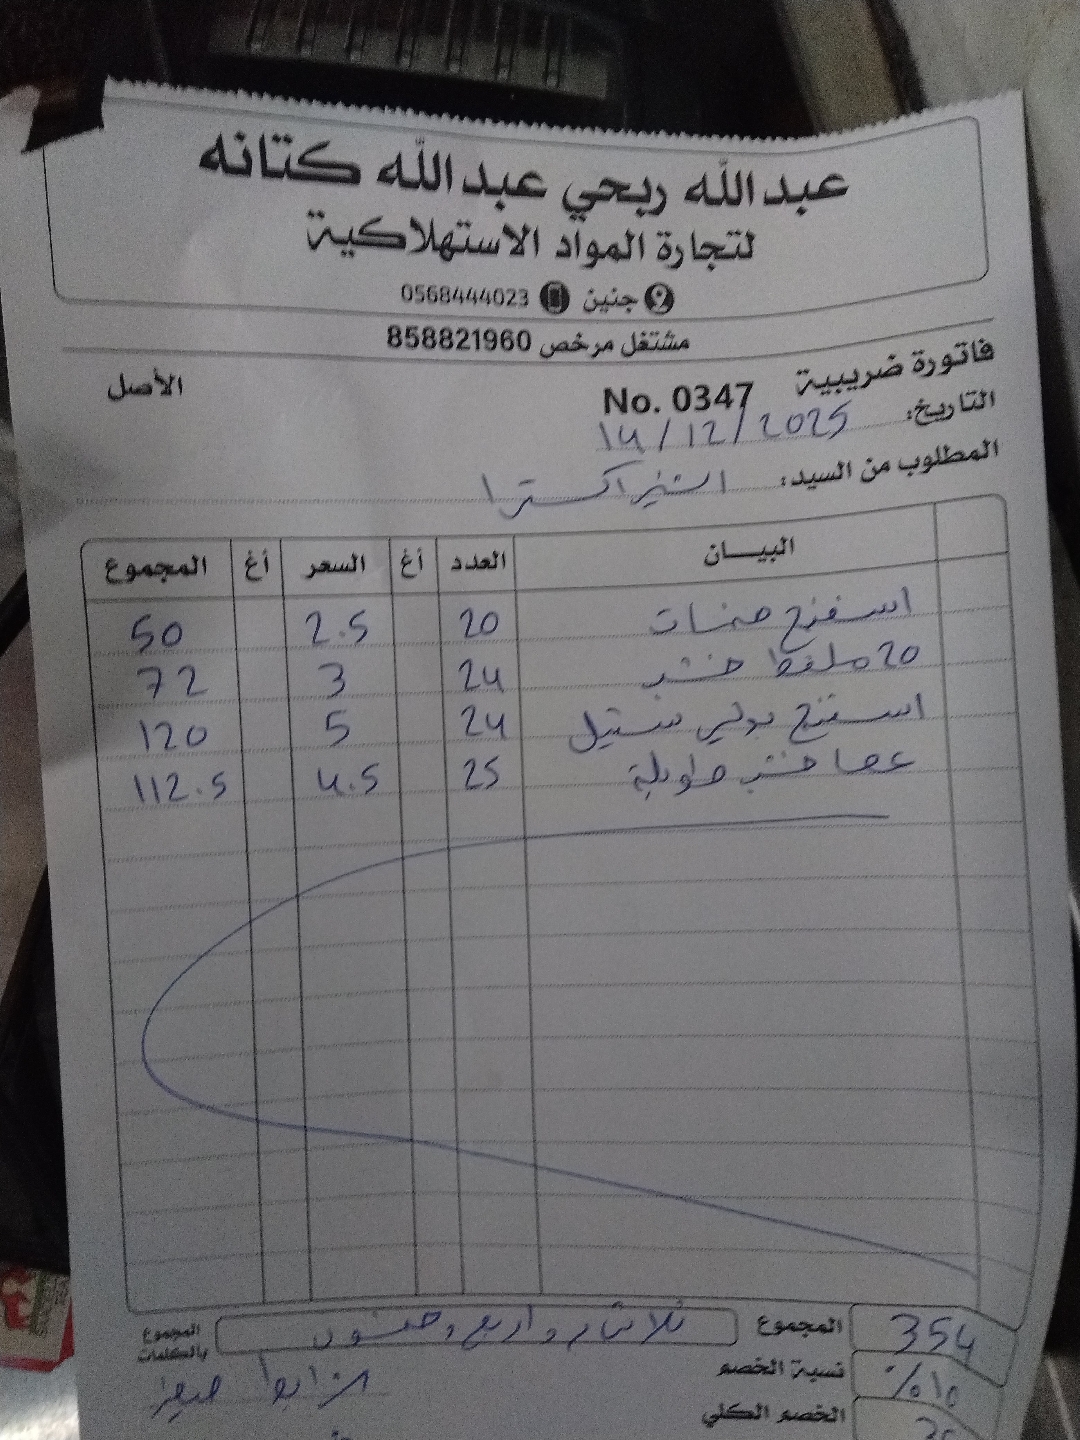 عبدالله ربحي عبدالله كتانه
لتجارة المواد الاستهلاكية
جنين 0568444023
مشتغل مرخص 858821960
فاتورة ضريبية No. 0347 الأصل
التاريخ: 14/12/2025
المطلوب من السيد: اكسترا
البيــــان العدد أغ السعر أغ المجموع
اسفنج 20 2.5 50
20 ملقط خشب 24 3 72
اسفنج بولي ستيل 24 5 120
عصا خشب طويلة 25 4.5 112.5
354 المجموع ثلاثمائة واربع وخمسون المجموع بالكلمات
%10 نسبة الخصم
الخصم الكلي